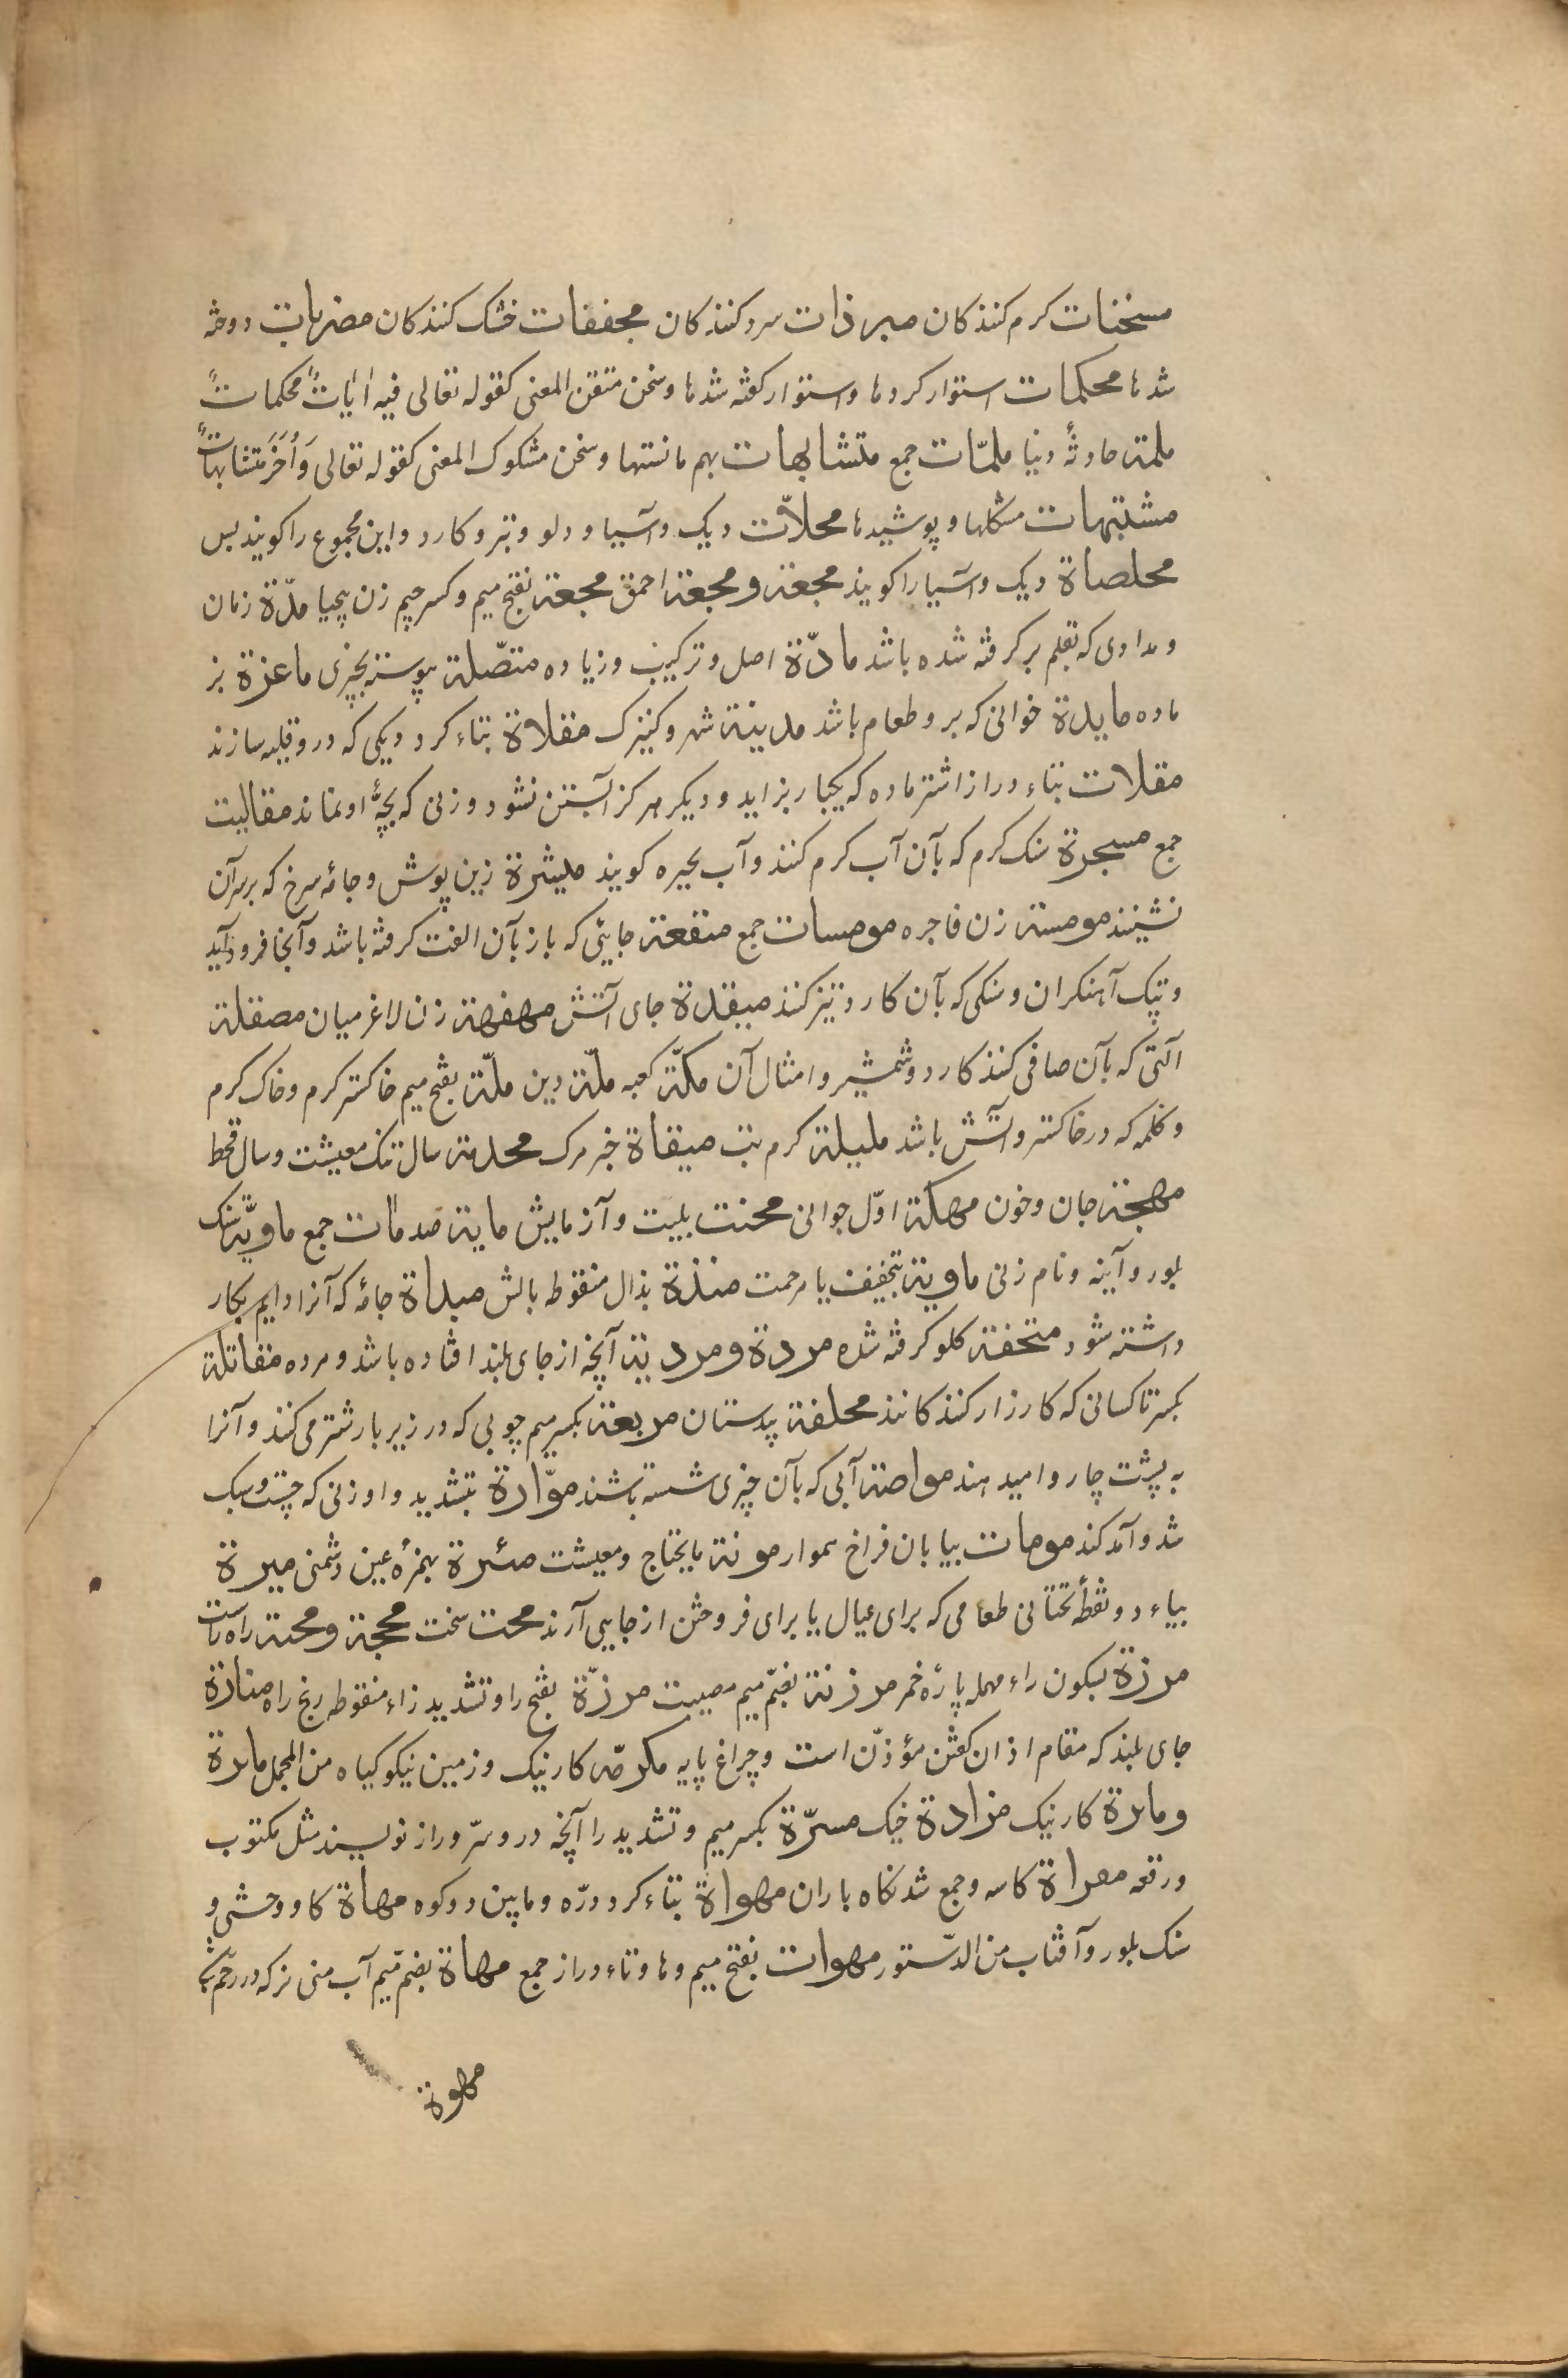 مسخنات کرم کنندکان مبرذات سرد کنندکان مجففات خشک کنندکان مضربات دوخته
شدها محکمات استوار کردها و استوار کفته شدها و سخن متقن المعنی کقوله تعالی فیه اٰیٰاتٌ محکماتٌ
ملمة حادثهٔ دنیا ملمّات جمع متشابهات بهم مانستها و سخن مشکوک المعنی کقوله تعالی وَاُخَرُ متشابهاتٌ
مشتبهات مشکلها و پوشیدها محلاّت دیک و آسیا و دلو و تبر و کارد و این مجموع را کویند بس
محلصاة دیک و آسیا را کویند مجعة و مجعة احمق مجعة بفتح میم و کسر جیم زن بیحیا مدّة زمان
و مدادی که بقلم بر کرفته شده باشد مادّة اصل و ترکیب و زیاده متصّلة پیوسته بچیزی ماعزة بز
ماده مایدة خوانی که برو طعام باشد مدینة شهر و کنیزک مقلاة بتاء کرد دیکی که درو قلیه سازند
مقلات بتاء دراز اشتر ماده که یکبار بزاید و دیکر هرکز آبستن نشود و زنی که بچهٔ او نماند مقالیت
جمع مسجرة سنک کرم که بآن آب کرم کنند و آب بحیره کویند میثرة زین پوش و جامهٔ سرخ که بر سر آن
نشینند مومسة زن فاجره مومسات جمع منقعة جایئی که باز بآن الفت کرفته باشد و آنجا فرود آید
و تپک آهنکران و سنکی که بآن کارد تیز کنند میقدة جای آتش مهفهة زن لاغر میان مصقلة
آلتی که بآن صافی کنند کارد و شمشیر و امثال آن مکّة کعبه ملّة دین ملّة بفتح میم خاکستر کرم و خاک کرم
و کلمه که در خاکستر و آتش باشد ملیلة کرم تب میقاة خبر مرک محدمة سال تنک معیشت و سال قحط
مهجة جان و خون مهکة اوّل جوانی محنت بلیت و آزمایش مایة صد مات جمع ماویّة سنک
بلور و آینه و نام زنی ماویة بتخفیف یا مرحمت منذة بذال منقوطه بالش مبداة جامهٔ که آنرا دایم بکار
داشته شود منخفة کلو کرفته شده مردة و مردیة آنچه از جای بلند افتاده باشد و مرده مقاتلة
بکسر تا کسانی که کارزار کنندکانند محلفة پدستان مربعة بکسر میم چوبی که در زیر بار شتر می کنند و آنرا
به پشت چاروا میدهند مواصة آبی که بآن چیزی شسته باشند موّارة بتشدید واو زنی که چست و سبک
شد و آمد کند مومات بیابان فراخ هموار مونة مایحتاج و معیشت مئرة بهمزهٔ عین دشمنی میرة
بیاء دو نقطهٔ تحتانی طعامی که برای عیال یا برای فروختن از جایی آرند محت سخت محجة و محنة راه راست
مرزة بسکون راء مهمله پارهٔ خمر مرزئة بضمّ میم مصیبت مرزّة بفتح را و تشدید زاء منقوطه رنج راه منارة
جای بلند که مقام اذان کفتن مؤذّن است و چراغ پایه مکرمّه کار نیک و زمین نیکو کیاه من المجمل مابرة
و مابرة کار نیک مزادة خیک مسرّة بکسر میم و تشدید را آنچه درو سرّ و راز نویسند مثل مکتوب
و رقعه مقراة کاسه و جمع شدنکاه باران مهواة بتاء کرد درّه و مابین دو کوه مهاة کاو وحشی و
سنک بلور و آفتاب من الدّستور مهوات بفتح میم و ها و تاء دراز جمع مهاة بضم میم آب منی نر که در رحم
مهوة